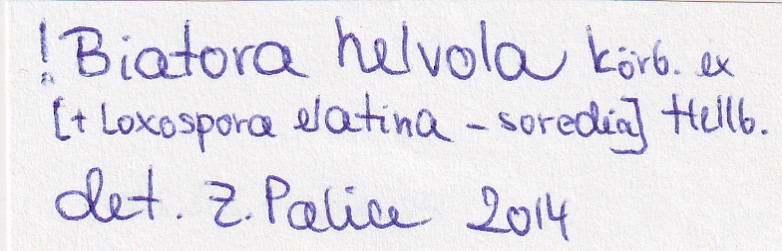 ! Biatora helvola Körb. ex
[+ Loxospora elatina - soredia] Hellb.
det. Z. Palice 2014